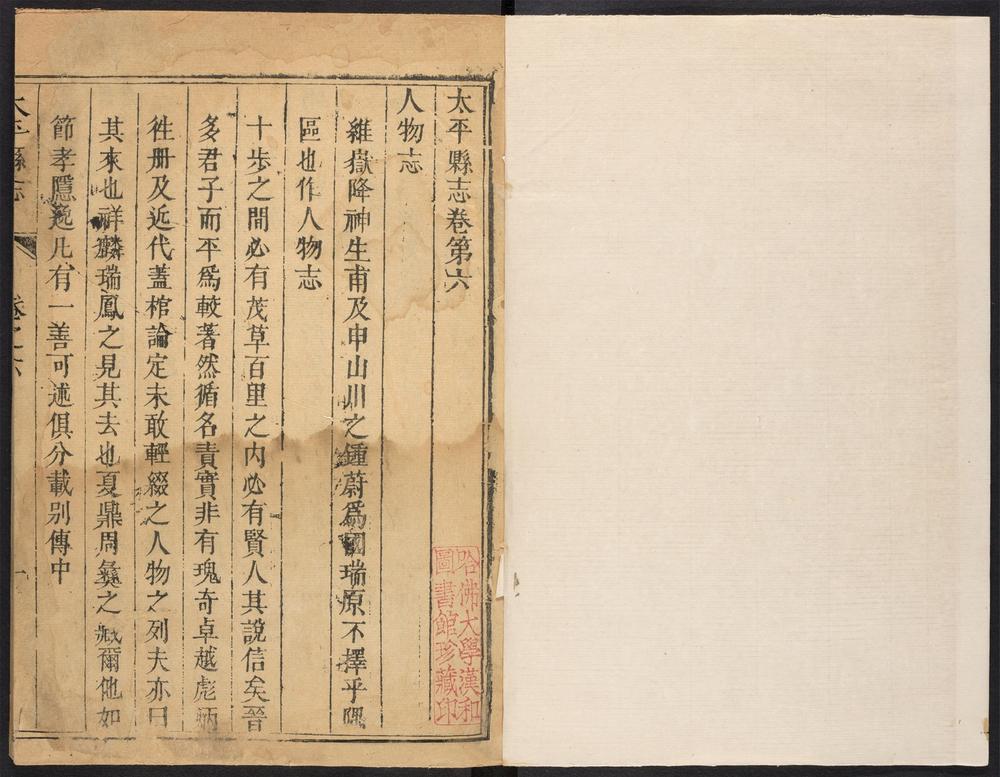 太平縣志卷第六
人物志
維嶽降神生甫及申山川之鍾蔚爲國瑞原不擇乎隅
區也作人物志
十步之間必有茂草百里之内必有賢人其說信矣晉
多君子而平爲較著然循名責實非有瑰奇卓越彪炳
徃册及近代蓋棺論定未敢輕綴之人物之列夫亦曰
其來也祥麟瑞鳳之見其去也夏鼎周彝之臧爾他如
節孝隱逸凡有一善可述俱分載别傳中
太平縣志 卷之六 一
哈佛大學漢和
圖書館珍藏印